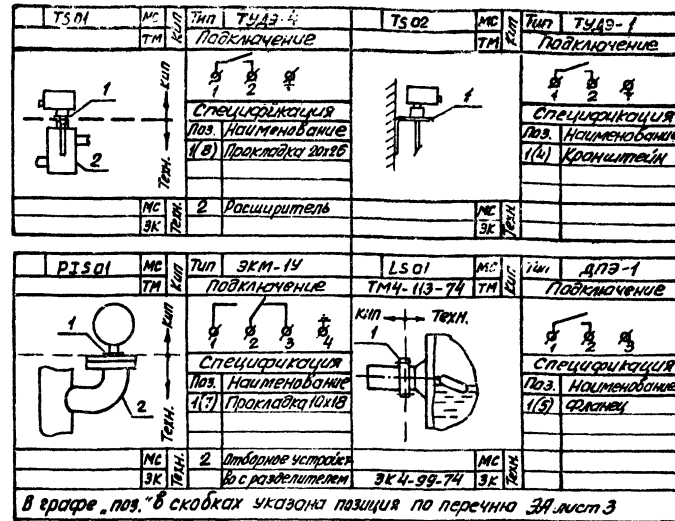 TS01 МС КИП Тип ТУДЭ-4
ТМ Подключение
КИП
1 2
1
Спецификация
Поз. Наименование
1(8) Прокладка 20х26
2
Техн.
МС Техн. 2 Расширитель
ЭК
TS02 МС КИП Тип ТУДЭ-1
ТМ Подключение
1 2
1
Спецификация
Поз. Наименование
1(4) Кронштейн
МС Техн.
ЭК
PIS01 МС КИП Тип ЭКМ-1У
ТМ Подключение
КИП
1
1 2 3 4
Спецификация
Поз. Наименование
1(7) Прокладка 10х18
2
Техн.
МС Техн. 2 Отборное устройст-
ЭК во с разделителем
LS01 МС КИП Тип ДПЭ-1
ТМ4-113-74 ТМ Подключение
КИП Техн.
1
1 2 3
Спецификация
Поз. Наименование
1(5) Фланец
МС Техн.
ЭК4-99-74 ЭК
В графе „поз." в скобках указана позиция по перечню ЭА лист 3